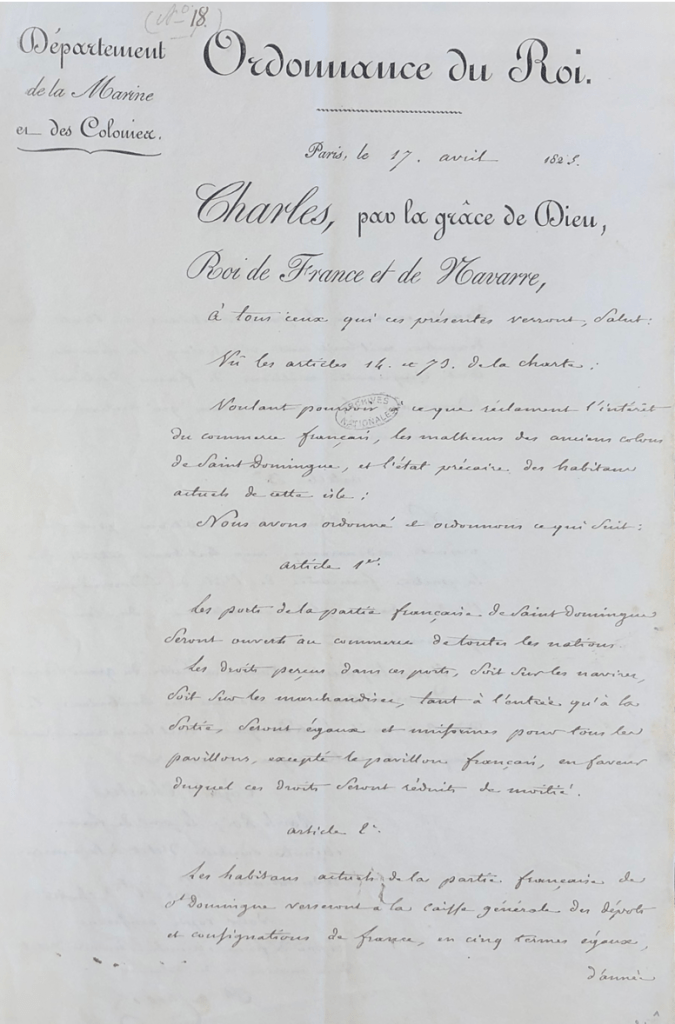 (N° 18.)
Département
de la Marine
et des Colonies.
Ordonnance du Roi.
Paris, le 17. avril 1825.
Charles, par la grâce de Dieu,
Roi de France et de Navarre,
à tous ceux qui ces présentes verront, Salut:
Vu les articles 14. et 73. de la charte;
Voulant pourvoir à ce que réclament l'intérêt
du commerce français, les malheurs des anciens colons
de Saint Domingue, et l'état précaire des habitans
actuels de cette isle;
Nous avons ordonné et ordonnons ce qui suit:
article 1er.
Les ports de la partie française de Saint Domingue
seront ouverts au commerce de toutes les nations.
Les droits perçus dans ces ports, soit sur les navires,
soit sur les marchandises, tant à l'entrée qu'à la
sortie, seront égaux et uniformes pour tous les
pavillons, excepté le pavillon français, en faveur
duquel ces droits seront réduits de moitié.
article 2.
Les habitans actuels de la partie française de
St Domingue verseront à la caisse générale des dépôts
et consignations de france, en cinq termes égaux,
d'année
ARCHIVES
NATIONALES